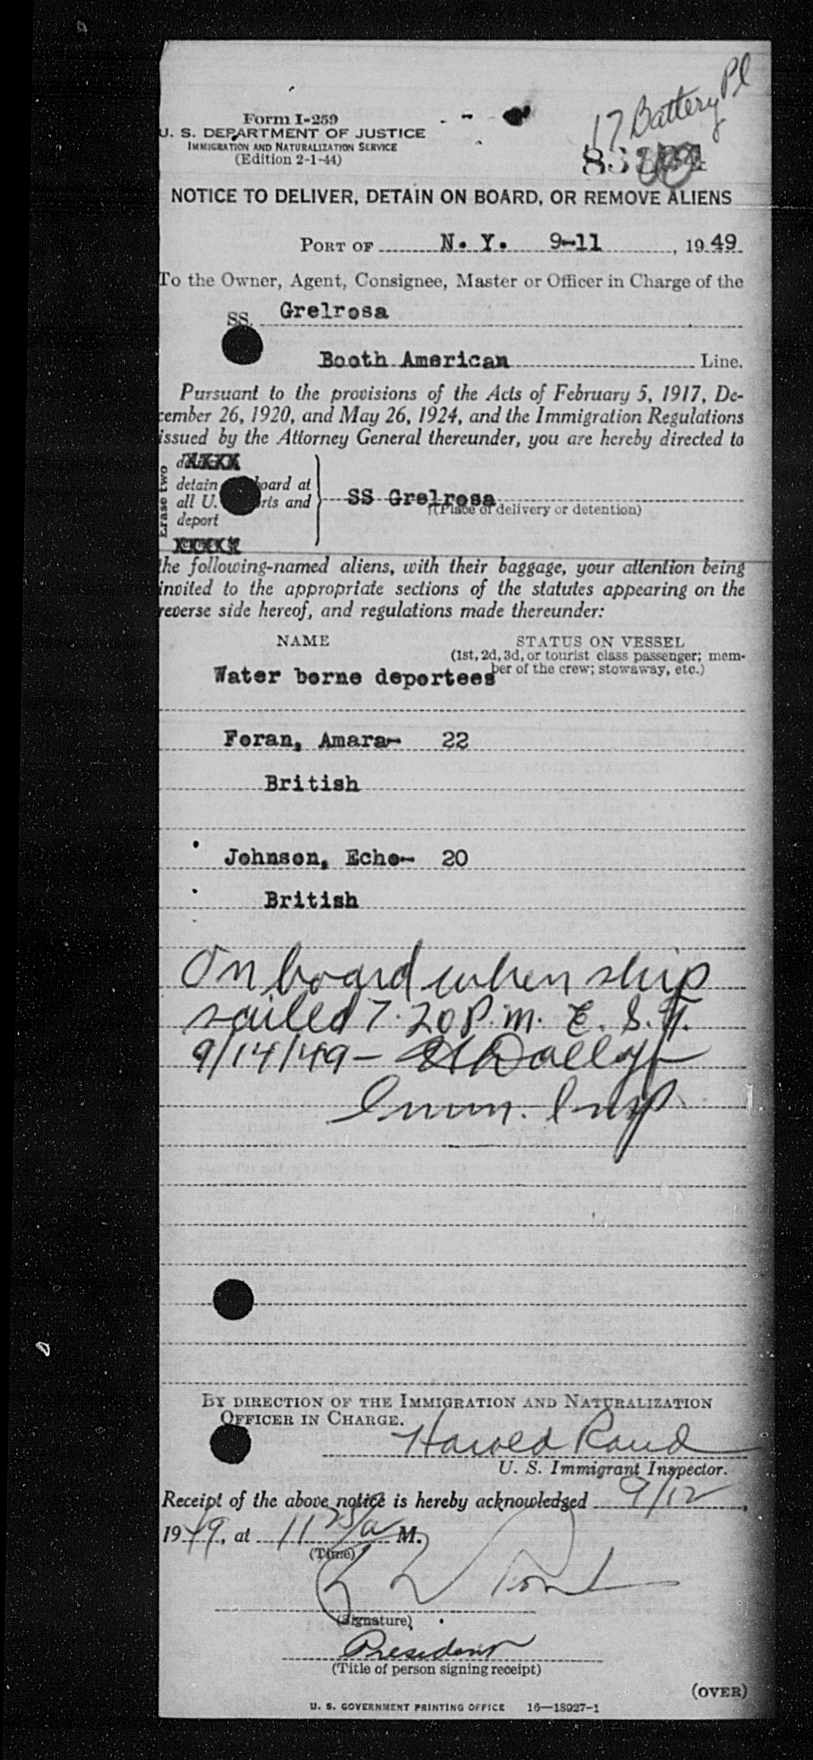 17 Battery Pl
Form I-259
U. S. DEPARTMENT OF JUSTICE
IMMIGRATION AND NATURALIZATION SERVICE
(Edition 2-1-44)
NOTICE TO DELIVER, DETAIN ON BOARD, OR REMOVE ALIENS
PORT OF N. Y. 9-11, 1949
To the Owner, Agent, Consignee, Master or Officer in Charge of the
SS. Grelrosa
Booth American Line.
Pursuant to the provisions of the Acts of February 5, 1917, De-
cember 26, 1920, and May 26, 1924, and the Immigration Regulations
issued by the Attorney General thereunder, you are hereby directed to
Erase two
detain board at
all U. and
deport
SS Grelrosa
(Place of delivery or detention)
the following-named aliens, with their baggage, your attention being
invited to the appropriate sections of the statutes appearing on the
reverse side hereof, and regulations made thereunder:
NAME STATUS ON VESSEL
(1st, 2d, 3d, or tourist class passenger; mem-
ber of the crew; stowaway, etc.)
Water borne deportees
Foran, Amara- 22
British
Johnson, Echo- 20
British
On board when ship
sailed 7.20 P.m. E. S. T.
9/14/49 -
Imm. Insp
BY DIRECTION OF THE IMMIGRATION AND NATURALIZATION
OFFICER IN CHARGE.
Harold Rand
U. S. Immigrant Inspector.
Receipt of the above notice is hereby acknowledged 9/12,
1949, at 11 25/a M.
(Time)
(Signature)
President
(Title of person signing receipt)
(OVER)
U. S. GOVERNMENT PRINTING OFFICE 16—18027-1